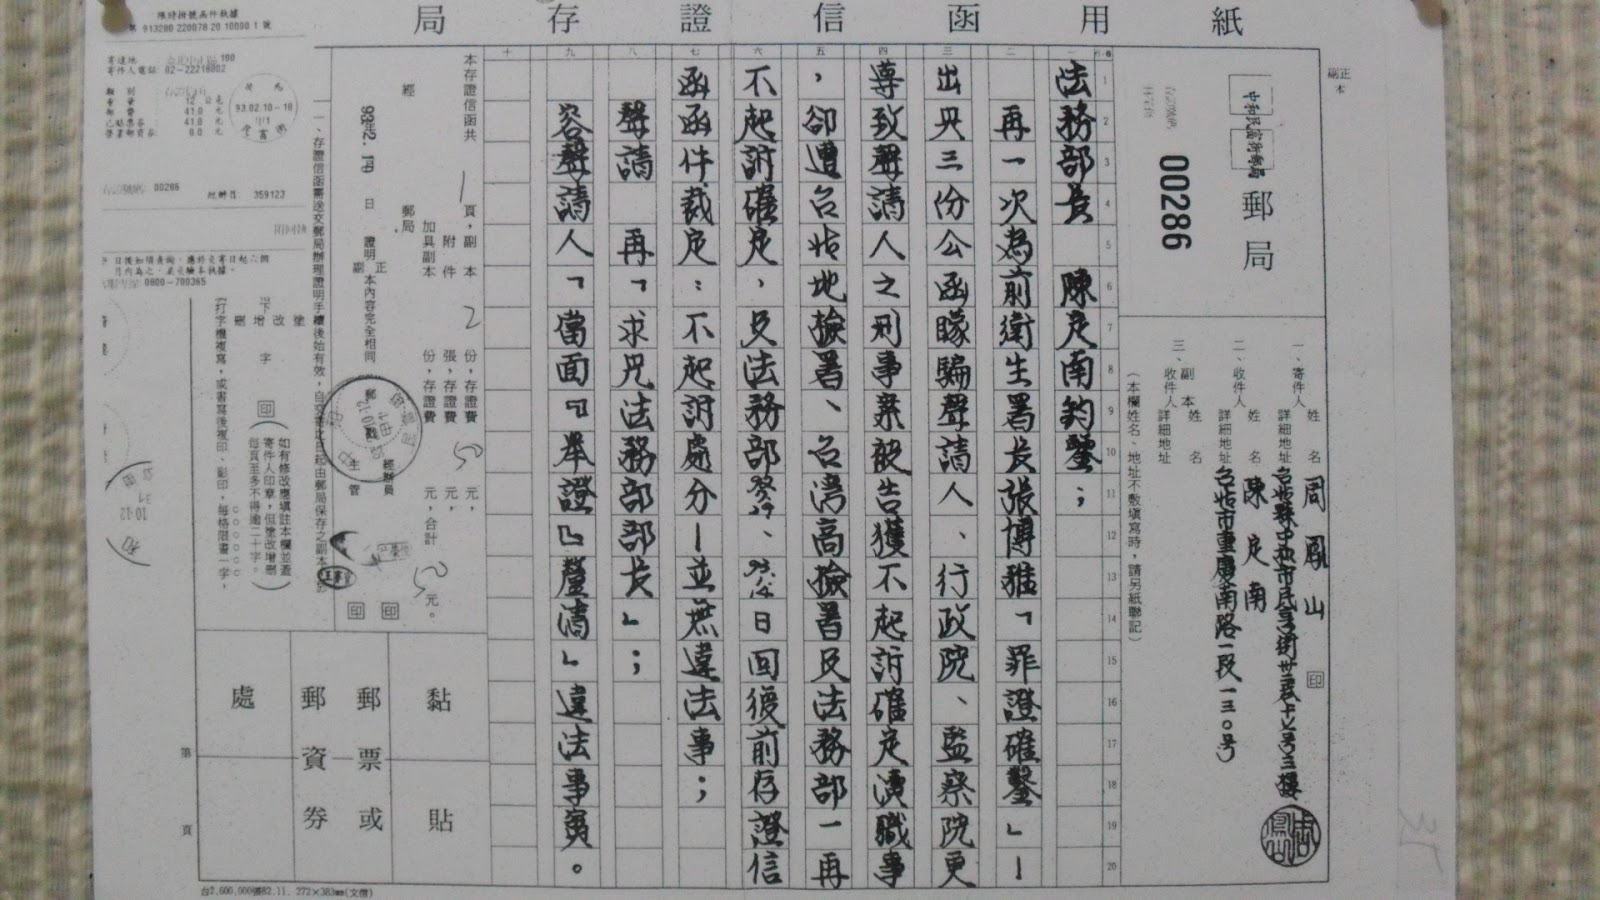 局存證信函用紙
正本
副
郵局
00286
一、寄件人 姓名 周鳳山 印
詳細地址
二、收件人 姓名 陳定南
詳細地址 台北市重慶南路一段一三〇号
三、副本收件人 姓名
詳細地址
(本欄姓名、地址不敷填寫時,請另紙聯記)
法務部長 陳定南鈞鑒;
再一次為前衛生署長張博雅「罪證確鑿」—
出具三份公函矇騙聲請人、行政院、監察院更
導致聲請人之刑事案被告獲不起訴確定瀆職事
,卻遭台北地檢署、台灣高檢署及法務部一再
不起訴確定,及法務部 日回復前存證信
函函件裁定:不起訴處分—並無違法事;
聲請 再「求見法務部部長」;
容聲請人「當面『舉證』釐清」違法事實。
本存證信函共1頁,副本2份,存證費50元,
附件 張,存證費 元,
加具副本 份,存證費 元,合計50元。
經 郵局
日證明正副本內容完全相同
經辦員
主管
印 印
一、存證信函需送交郵局辦理證明手續後始有效,
塗改增刪 字 印 (如有修改應填註本欄並蓋
寄件人印章,但塗改增刪
每頁至多不得逾二十字。)
黏貼
郵票或
郵資券
處
第 頁
限時掛號函件執據
第 913280 220078 20 10090 1 號
寄達地: 100
寄件人電話: 02-22218802
類別
重量 12 公克
郵費 41.0 元
已貼票券: 41.0 元
營業郵資券: 0.0 元
93.02.10-18
00286
經辦員: 359123
0800-700365
台2,600,000張82.11. 272×383mm(文信)